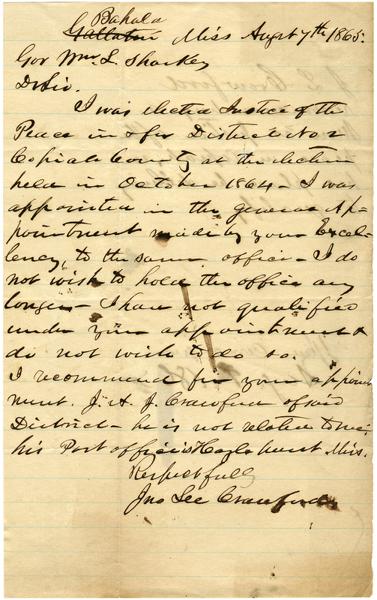 Bahala
Gallatin Miss Augst 7th 1865.
Gov Wm L. Sharkey
Dr Sir.
I was elected Justice of the
Peace in & for District No 2
Copiah County at the election
held in October 1864 - I was
appointed in the general Ap-
pointment made by your Excel-
lency, to the same office - I do
not wish to hold the office any
longer - I have not qualified
under your appointment &
do not wish to do so.
I recommend for your appoint
ment. J. A. J. Crawford of said
District - he is not related to me.
his Post office is Hazlehurst Miss.
Respectfully
Jno Lee Crawford